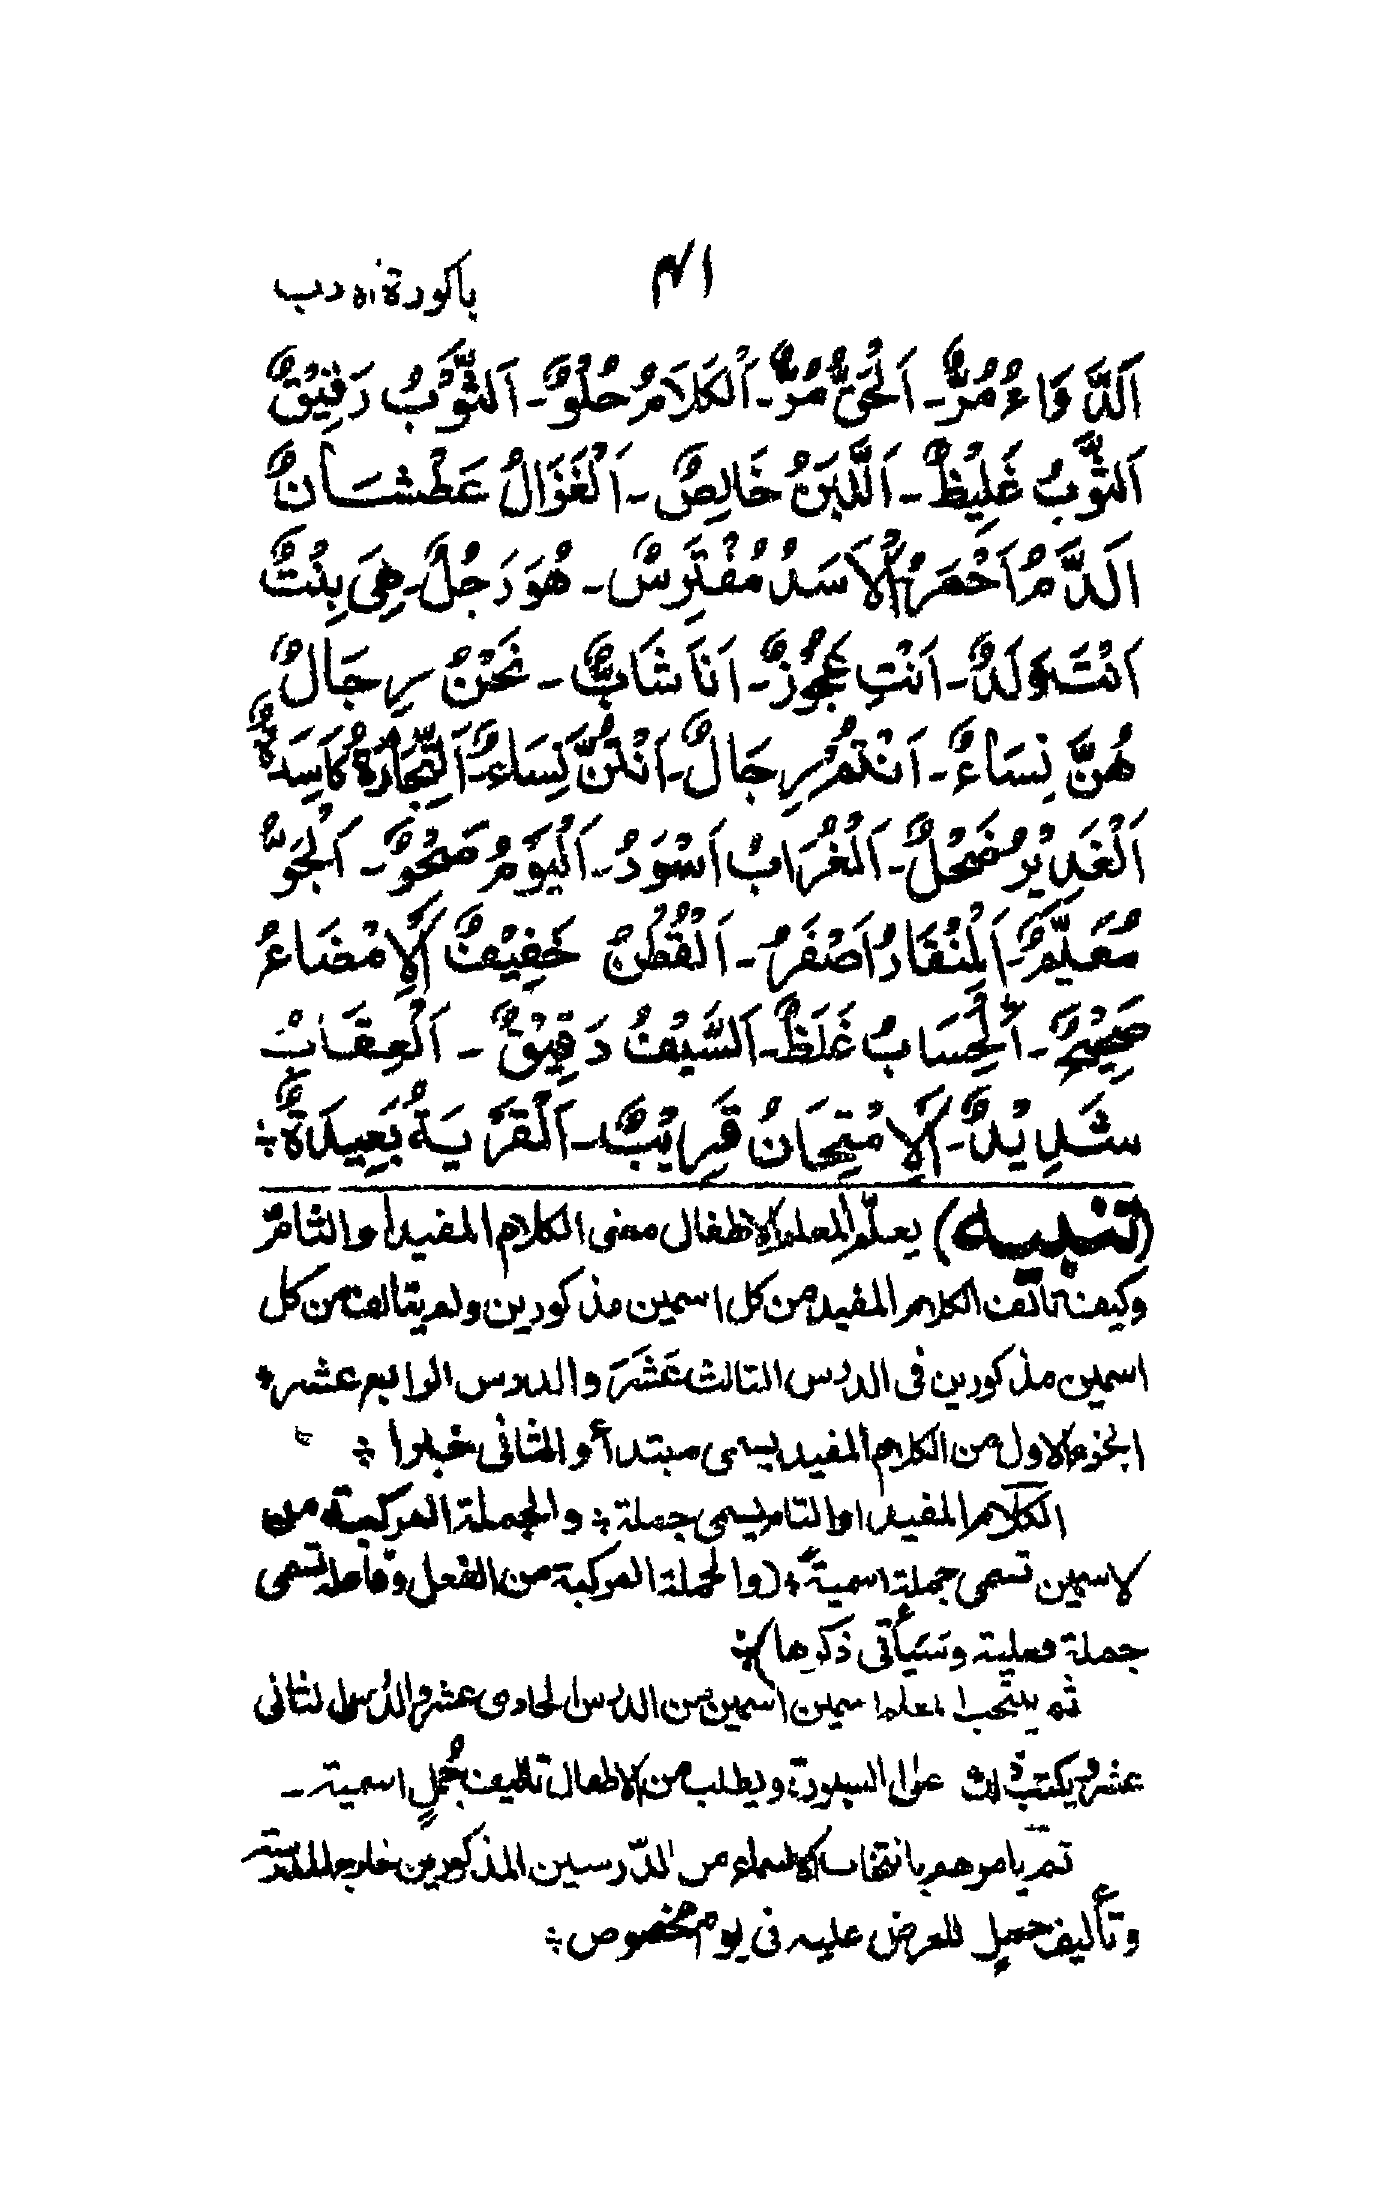 باكورة الادب
اَلدَّوَاءُ مُرٌّ ـ اَلْحَقُّ مُرٌّ ـ اَلْكَلَامُ حُلْوٌ ـ اَلثَّوْبُ رَقِيْقٌ
اَلثَّوْبُ غَلِيْظٌ ـ اَللَّبَنُ خَالِصٌ ـ اَلْغَزَالُ عَطْشَانٌ
اَلدَّمُ اَحْمَرُ ـ اَلْاَسَدُ مُفْتَرِسٌ ـ هُوَ رَجُلٌ ـ هِيَ بِنْتٌ
اَنْتَ وَلَدٌ ـ اَنْتِ عَجُوْزٌ ـ اَنَا شَابٌّ ـ نَحْنُ رِجَالٌ
هُنَّ نِسَاءٌ ـ اَنْتُمْ رِجَالٌ ـ اَنْتُنَّ نِسَاءٌ ـ اَلتِّجَارَةُ كَاسِدَةٌ
اَلْغَدِيْرُ ضَحْلٌ ـ اَلْغُرَابُ اَسْوَدُ ـ اَلْيَوْمُ صَحْوٌ ـ اَلْجَوُّ
مُغَيَّمٌ ـ اَلْمِنْقَارُ اَصْفَرُ ـ اَلْقُطْنُ خَفِيْفٌ ـ اَلْاِمْضَاءُ
صَحِيْحٌ ـ اَلْحِسَابُ غَلَطٌ ـ اَلسَّيْفُ رَقِيْقٌ ـ اَلْعِقَابُ
شَدِيْدٌ ـ اَلْاِمْتِحَانُ قَرِيْبٌ ـ اَلْقَرْيَةُ بَعِيدَةٌ ÷
(تنبيه) يعلّم المعلم الاطفال معنى الكلام المفيد او التام
وكيف تالف الكلام المفيد من كل اسمين مذكورين ولم يتالف من كل
اسمين مذكورين فى الدرس الثالث عَشَرَ والدرس الرابع عشر ÷
الجزء الاول من الكلام المفيد يسمى مبتدأ و الثانى خبرا ÷
الكلام المفيد او التام يسمى جملة ÷ والجملة المركبة من
لاسمين تسمى جملة اسمية ÷ (والجملة المركبة من الفعل وفاعله تسمى
جملة فعلية وسيأتى ذكرها) ÷
ثم ينتخب المعلم اسمين اسمين من الدرس الحادى عشر والدرس الثانى
عشر ويكتب ذلك على السبورة ويطلب من الاطفال تاليف جُملٍ اسمية ـ
ثم يامرهم بانتخاب الاسماء من الدّرسين المذكورين خارج المدرسة
وتأليف جملٍ للعرض عليه فى يوم مخصوص ÷